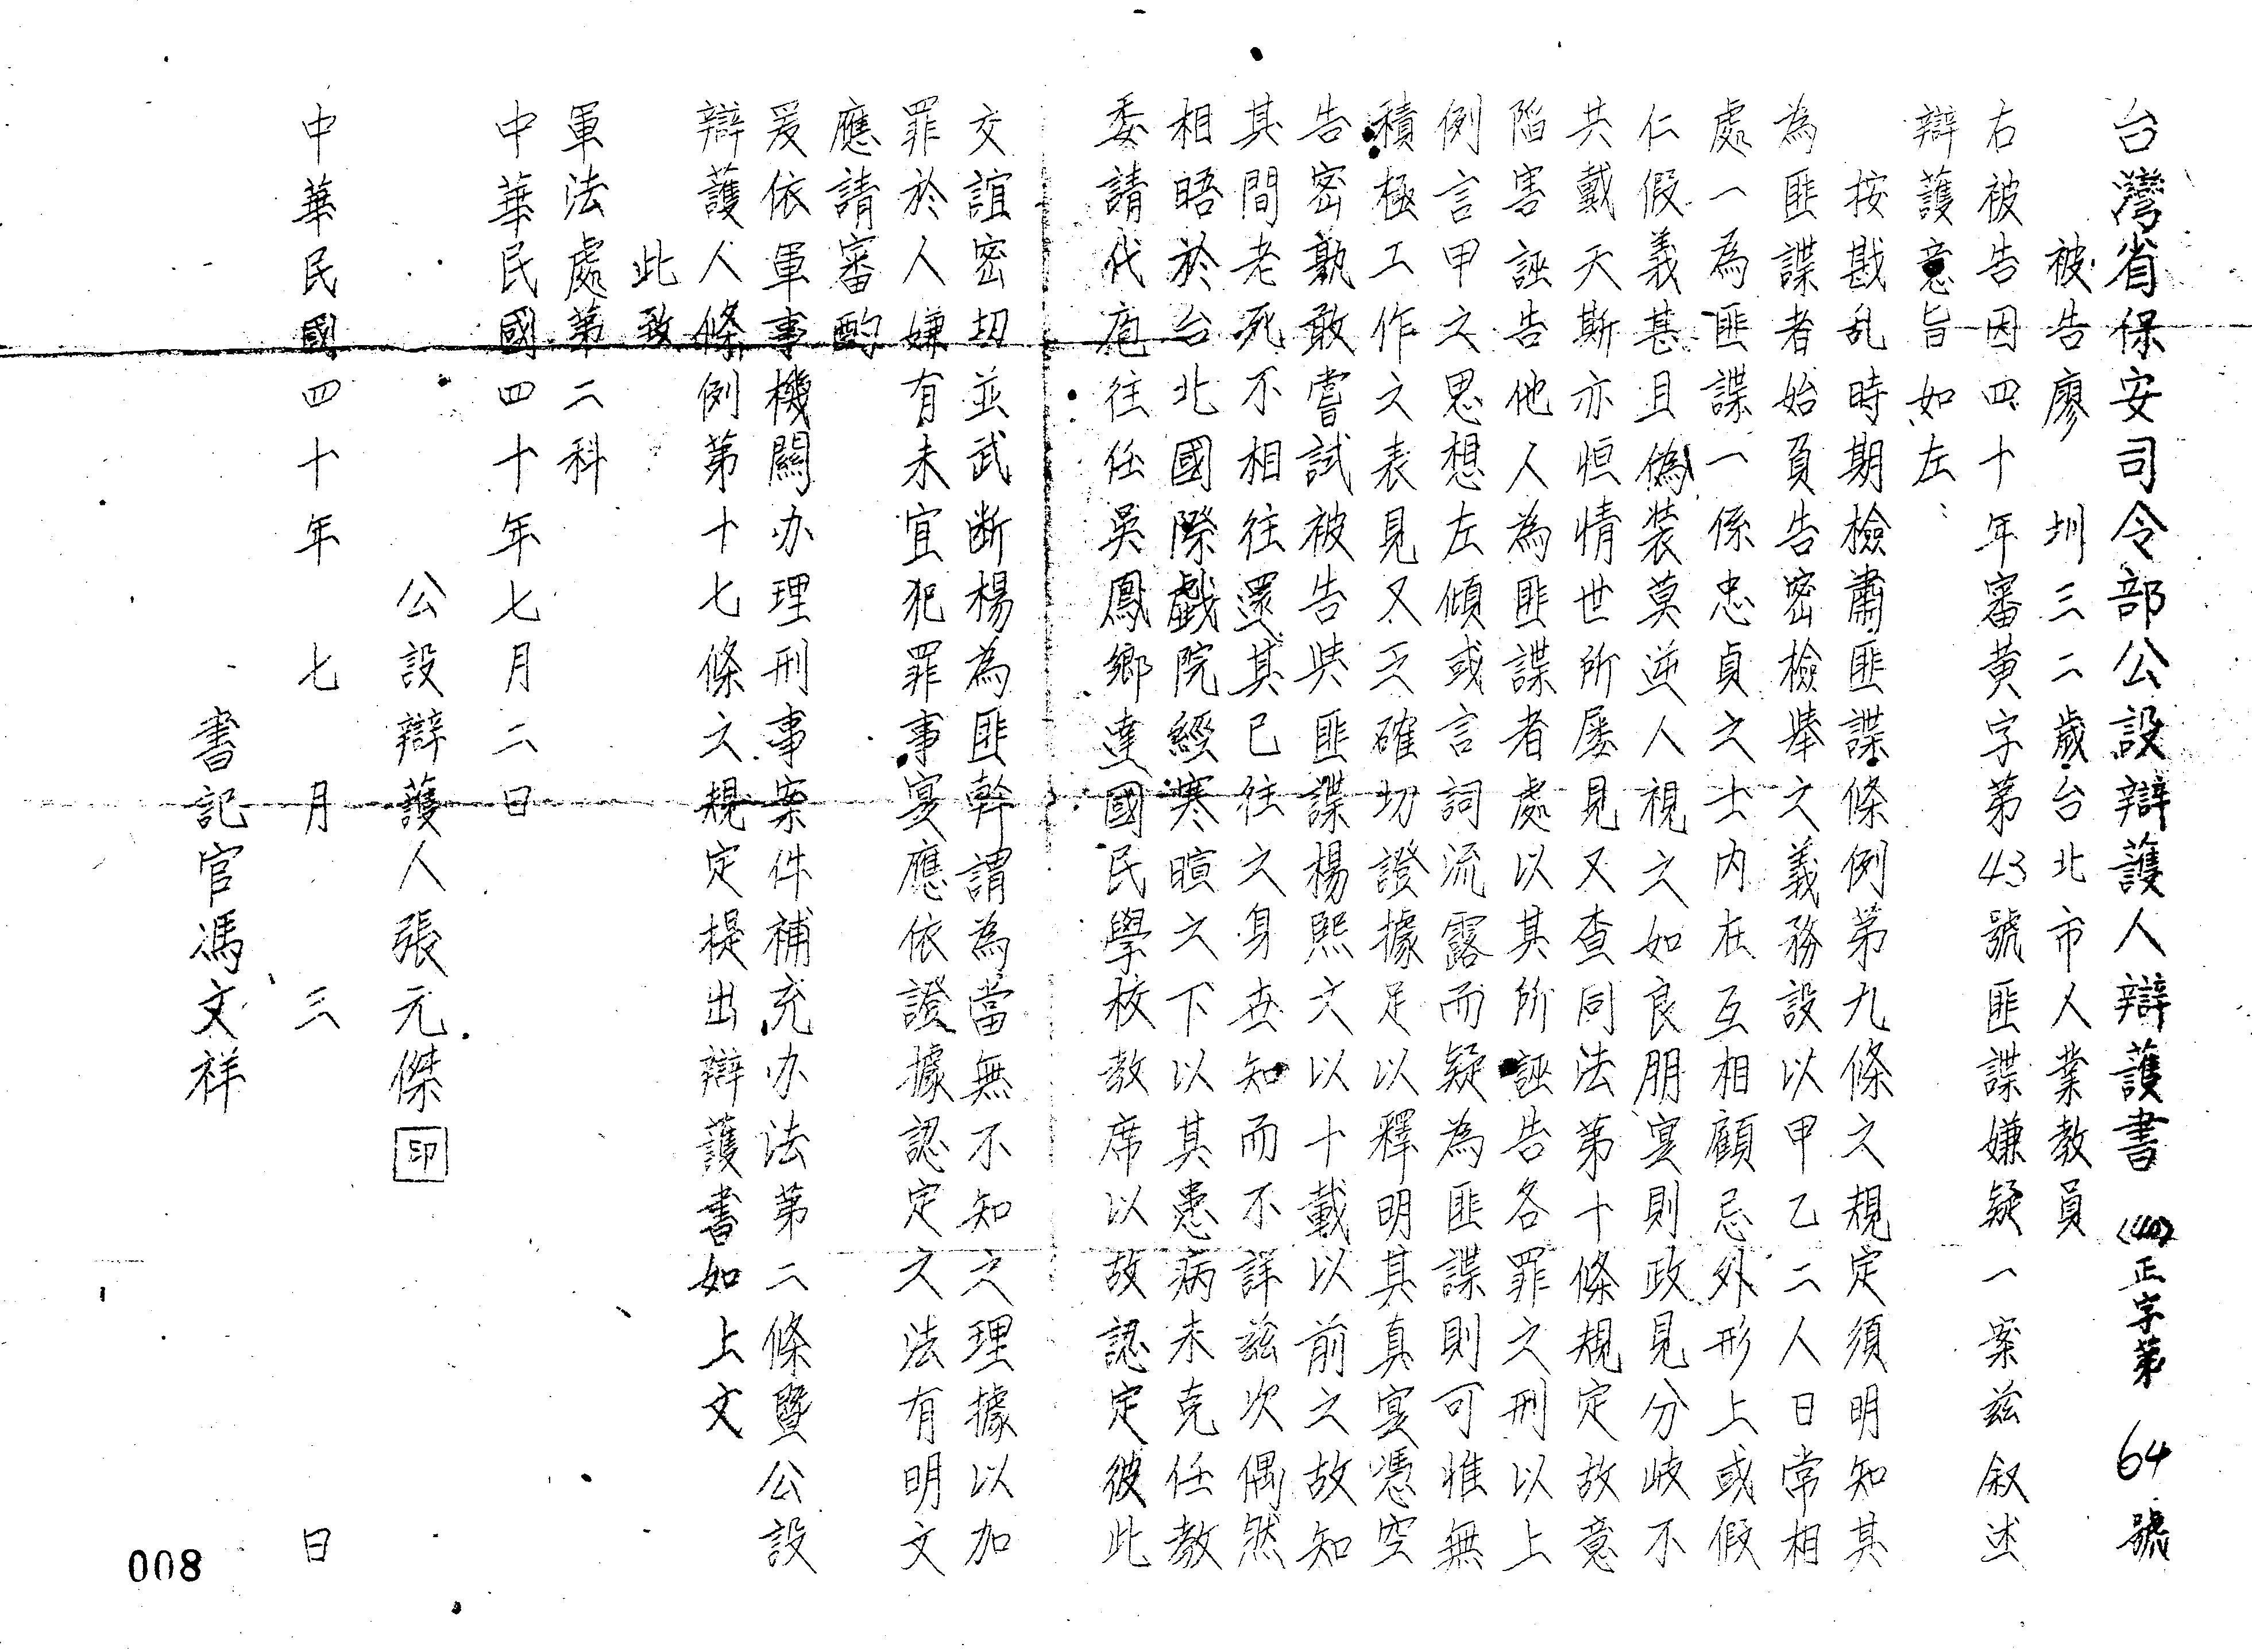 台灣省保安司令部公設辯護人辯護書 (40)正字第 64 號
被告廖 圳三二歲台北市人業教員
右被告因四十年審黃字第43號匪諜嫌疑一案茲叙述
辯護意旨如左：
按戡乱時期檢肅匪諜條例第九條之規定須明知其
為匪諜者始負告密檢舉之義務設以甲乙二人日常相
處一為匪諜一係忠貞之士内在互相顧忌外形上或假
仁假義甚且偽裝莫逆人視之如良朋寔則政見分歧不
共戴天斯亦恒情世所屡見又查同法第十條規定故意
陷害誣告他人為匪諜者處以其所誣告各罪之刑以上
例言甲之思想左傾或言詞流露而疑為匪諜則可惟無
積極工作之表見又乏確切證據足以釋明其真寔憑空
告密勦敢嘗試被告與匪諜楊熙文以十載以前之故知
其間老死不相往還其已往之身世知而不詳茲次偶然
相晤於台北國際戲院經寒暄之下以其患病未克任教
委請代庖往任吳鳳鄉達國民學校教席以故認定彼此
交誼密切並武断楊為匪幹謂為當無不知之理據以加
罪於人嫌有未宜犯罪事寔應依證據認定之法有明文
應請審酌
爰依軍事機關办理刑事案件補充办法第二條暨公設
辯護人條例第十七條之規定提出辯護書如上文
此致
軍法處第二科
中華民國四十年七月二日
公設辯護人張元傑 印
中華民國四十年 七 月 三 日
書記官馮文祥
008